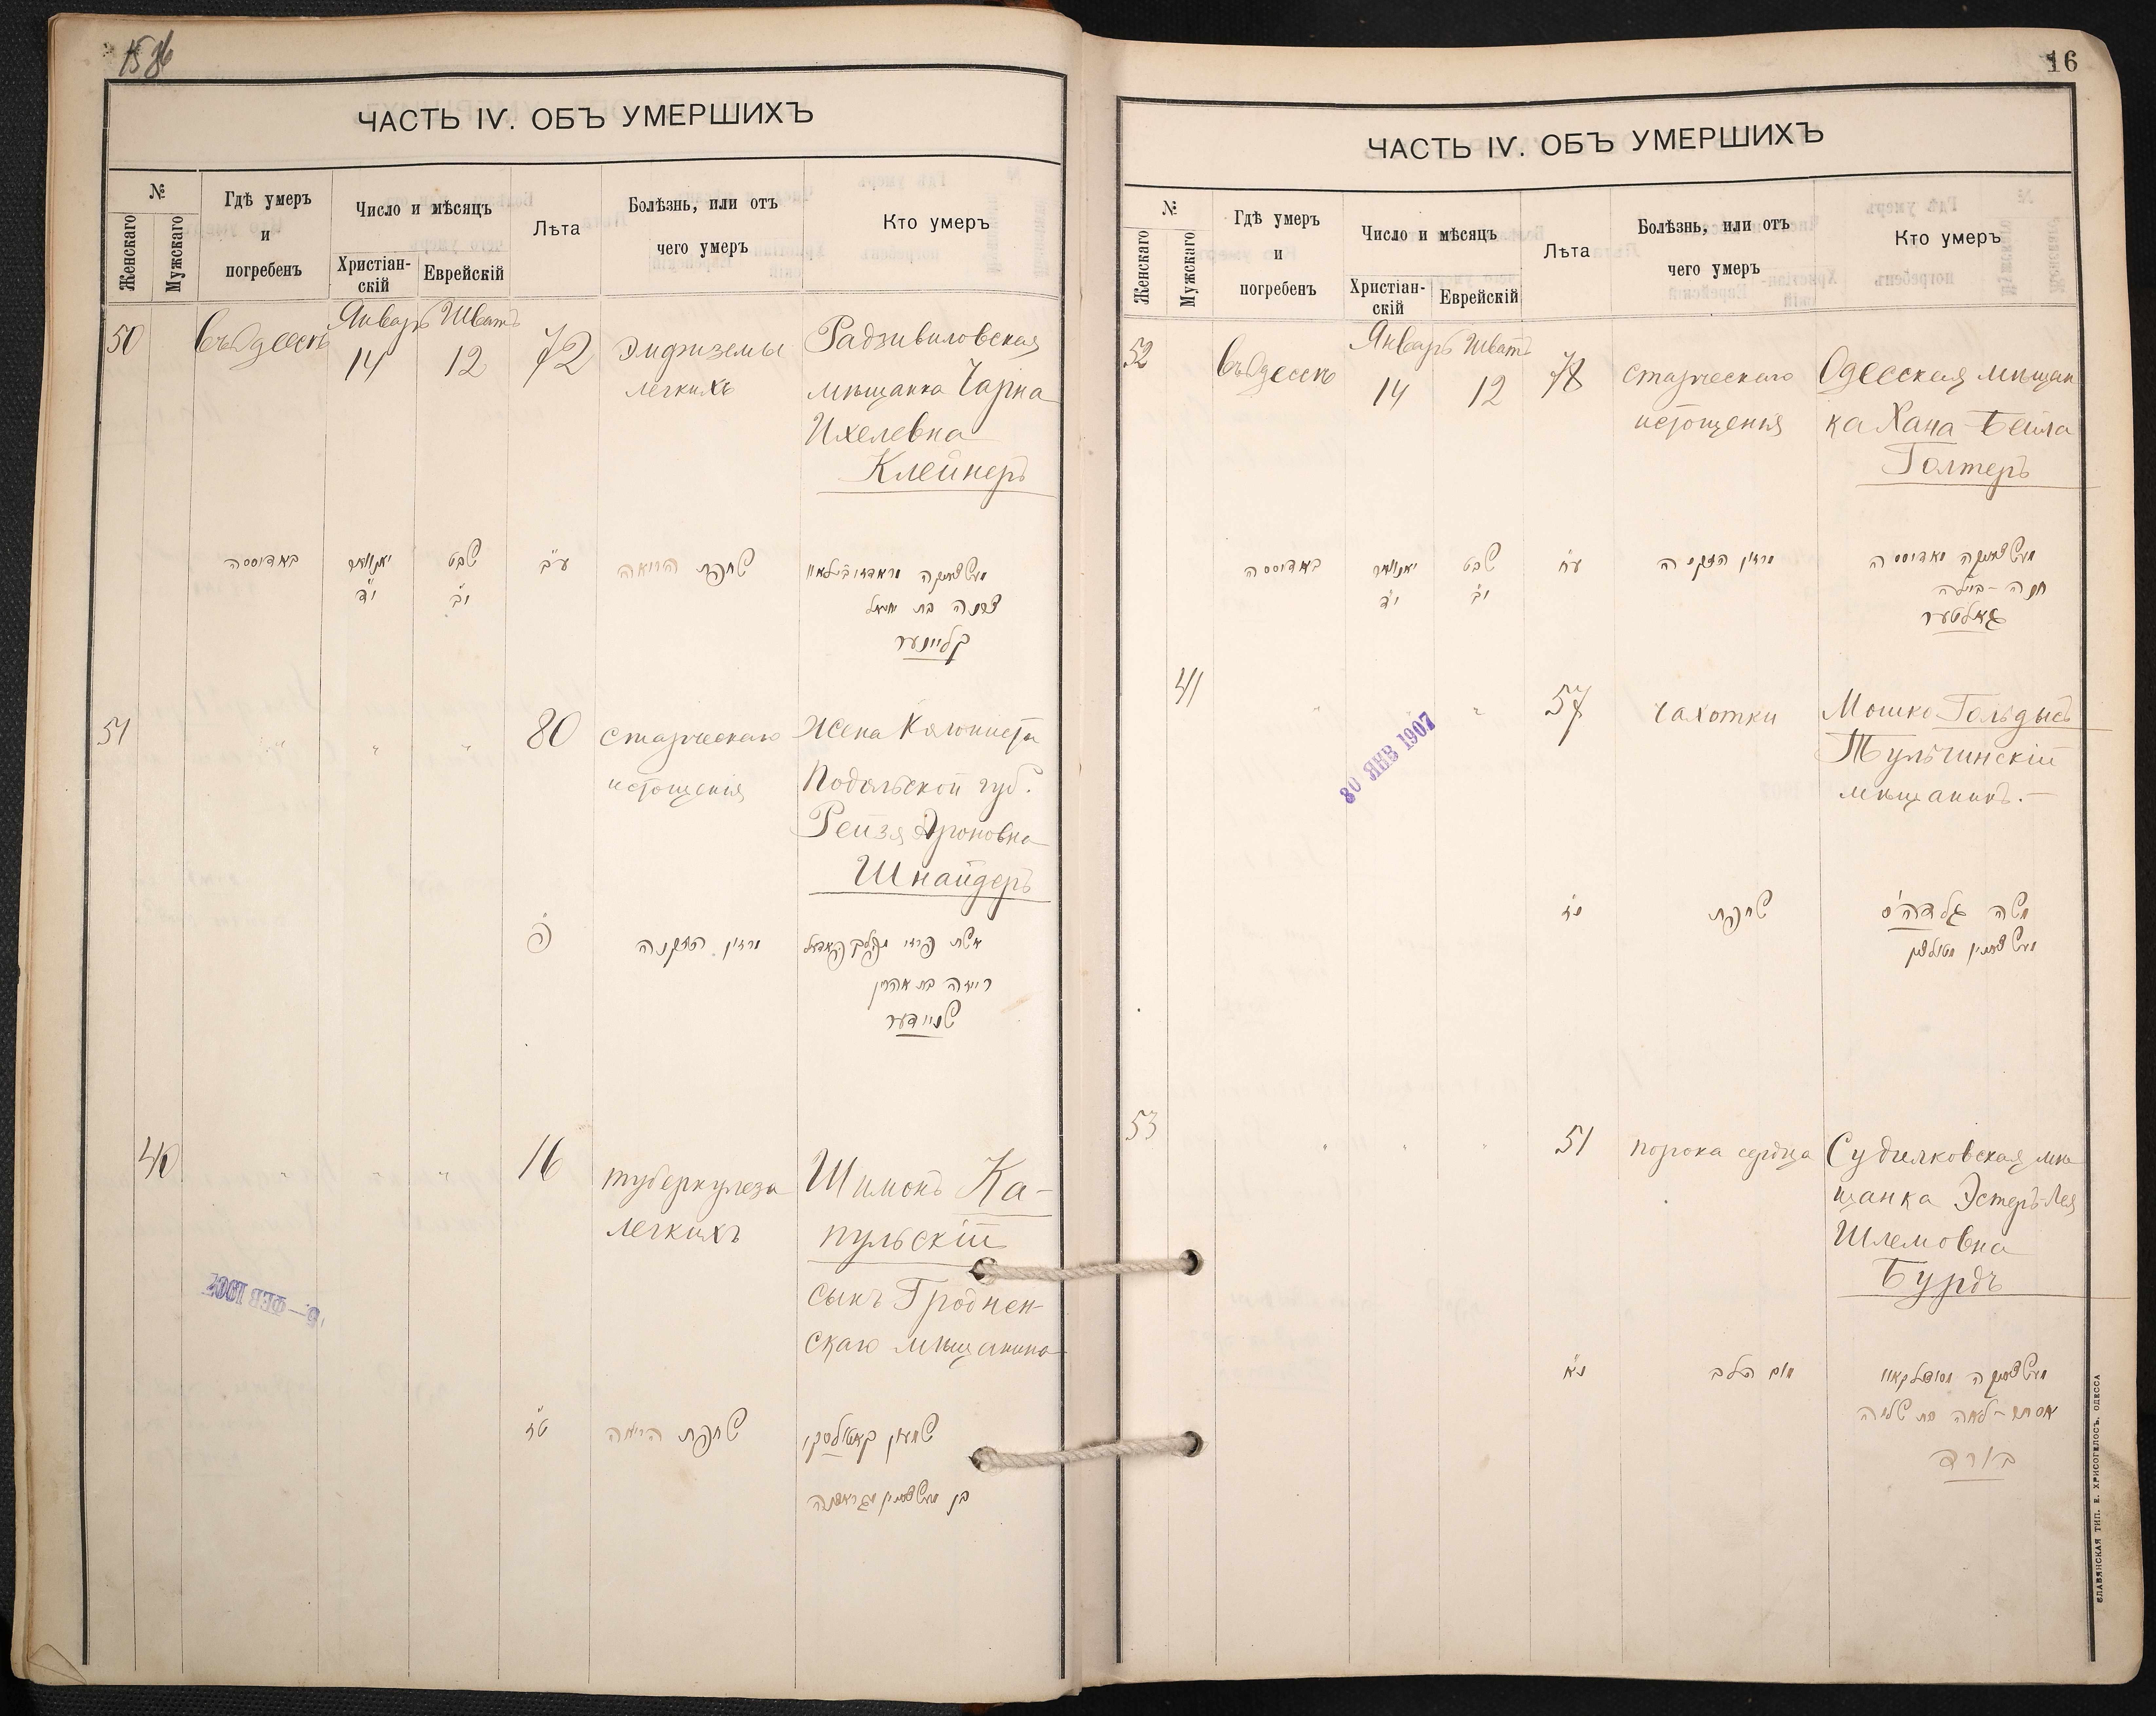 15 об
ЧАСТЬ IV. ОБЪ УМЕРШИХЪ
№
Женскаго
Мужскаго
Гдѣ умеръ
и
погребенъ
Число и мѣсяцъ
Христіан-
скій
Еврейскій
Лѣта
Болѣзнь, или отъ
чего умеръ
Кто умеръ
50
въ Одессѣ
Январь
14
Шватъ
12
72
эмфиземы
легкихъ
Радзивиловская
мѣщанка Чарна
Ихелевна
Клейнеръ
באדיססה
יאנואר
י״ד
שבט
י״ב
ע״ב
שחפת הריאה
טשארנה בת יחיאל
קליינער
51
"
"
"
80
старческаго
истощенія
Жена Колониста
Подольской губ.
Рейзя Ароновна
Шнайдеръ
פ׳
רזון הזקנה
בת אהרון
שניידער
40
"
"
"
16
туберкулеза
легкихъ
Шимонъ Ка-
пульскій
сынъ Гроднен-
скаго мѣщанина
5 - ФЕВ 1907
ט״ז
שחפת הריאה
שמעון קאפולסקי
16
ЧАСТЬ IV. ОБЪ УМЕРШИХЪ
№
Женскаго
Мужскаго
Гдѣ умеръ
и
погребенъ
Число и мѣсяцъ
Христіан-
скій
Еврейскій
Лѣта
Болѣзнь, или отъ
чего умеръ
Кто умеръ
52
въ Одессѣ
Январь
14
Шватъ
12
78
старческаго
истощенія
Одесская мѣщан
ка Хана-Бейла
Голтеръ
באדיססה
יאנואר
י״ד
שבט
י״ב
ע״ח
רזון הזקנה
מאדיססה
חנה-ביילה
גאלטער
41
"
"
57
чахотки
Мошко Гольдысъ
Тульчинскій
мѣщанинъ.—
30 ЯНВ 1907
נ״ז
שחפת
משה גלדה׳ס
53
"
"
"
51
порока сердца
Судилковская мѣ
щанка Эстеръ-Лея
Шлемовна
Бурдъ
נ״א
מום הלב
אסתר-לאה בת שלמה
בורד
СЛАВЯНСКАЯ ТИП. Е. ХРИСОГЕЛОСЪ. ОДЕССА